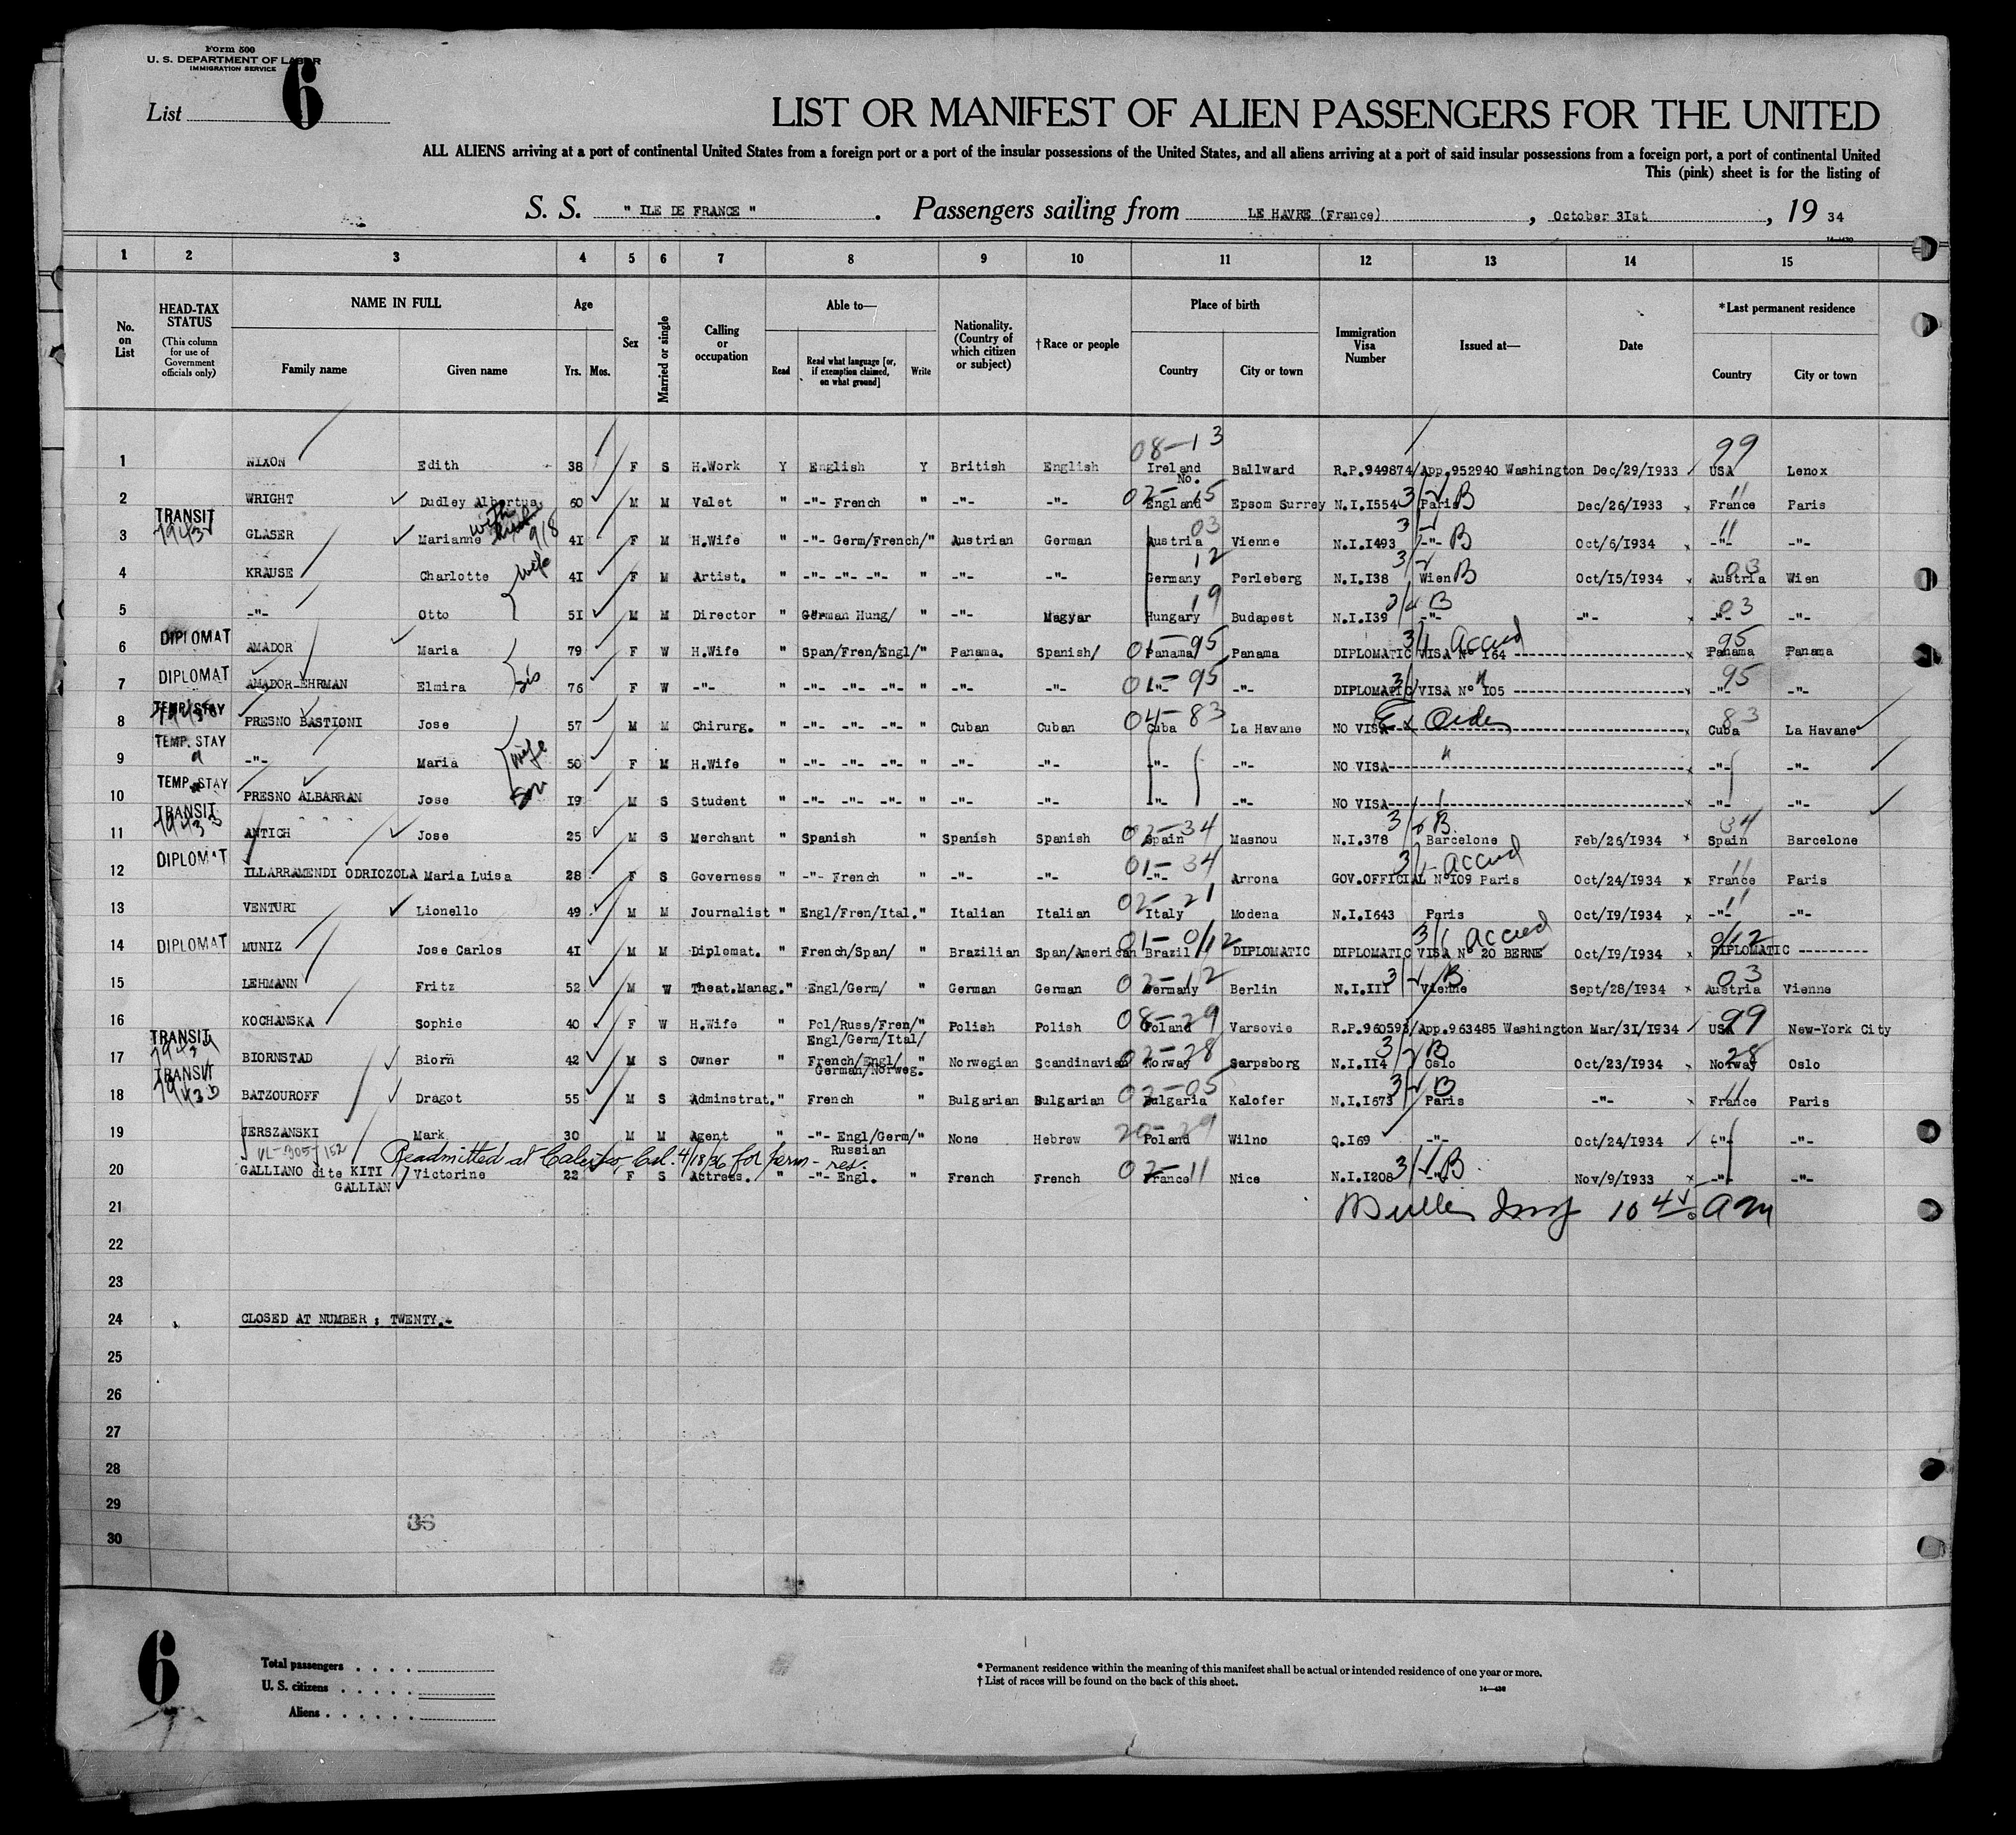 Form 500
U. S. DEPARTMENT OF LABOR
IMMIGRATION SERVICE
List 6
LIST OR MANIFEST OF ALIEN PASSENGERS FOR THE UNITED
ALL ALIENS arriving at a port of continental United States from a foreign port or a port of the insular possessions of the United States, and all aliens arriving at a port of said insular possessions from a foreign port, a port of continental United
This (pink) sheet is for the listing of
S. S. " ILE DE FRANCE " . Passengers sailing from LE HAVRE (France) , October 3Ist , 19 34
1 2 3 4 5 6 7 8 9 10 11 12 13 14 15
No. on List
HEAD-TAX STATUS (This column for use of Government officials only)
NAME IN FULL
Family name Given name
Age
Yrs. Mos.
Sex
Married or single
Calling or occupation
Able to—
Read Read what language [or, if exemption claimed, on what ground] Write
Nationality. (Country of which citizen or subject)
†Race or people
Place of birth
Country City or town
Immigration Visa Number
Issued at—
Date
*Last permanent residence
Country City or town
08-13 99
1 NIXON Edith 38 F S H.Work Y English Y British English Ireland Ballward R.P.949874/App.952940 Washington Dec/29/I933 USA Lenox
No.
2 WRIGHT Dudley Albertus 60 M M Valet " -"- French " -"- -"- 02-15 England Epsom Surrey N.I.I554 3/2 B Paris Dec/26/I933 11 France Paris
TRANSIT
3 GLASER Marianne with 9/8 4I F M H.Wife " -"- Germ/French/" Austrian German 03 Austria Vienne N.I.I493 -"- B Oct/6/I934 11 -"- -"-
4 KRAUSE Charlotte wife 4I F M Artist. " -"- -"- -"- " -"- -"- 12 Germany Perleberg N.I.I38 3/2 Wien B Oct/I5/I934 03 Austria Wien
5 -"- Otto 5I M M Director " German Hung/ " -"- Magyar 19 Hungary Budapest N.I.I39 B -"- -"- 03 -"- -"-
DIPLOMAT
6 AMADOR Maria 79 F W H.Wife " Span/Fren/Engl/" Panama. Spanish/ 01-95 Panama Panama DIPLOMATIC VISA Nº I64 3/1 Accred 95 Panama Panama
DIPLOMAT
7 AMADOR-EHRMAN Elmira sis 76 F W -"- " -"- -"- -"- " -"- -"- 01-95 -"- -"- DIPLOMATIC VISA Nº I05 95 -"- -"-
TEMP. STAY
8 PRESNO BASTIONI Jose 57 M M Chirurg. " -"- -"- -"- " Cuban Cuban 04-83 Cuba La Havane NO VISA Ex Order 83 Cuba La Havane
TEMP. STAY
9 -"- Maria wife 50 F M H.Wife " -"- -"- -"- " -"- -"- -"- -"- NO VISA -"- -"-
TEMP. STAY
10 PRESNO ALBARRAN Jose Son I9 M S Student " -"- -"- -"- " -"- -"- -"- -"- NO VISA -"- -"-
TRANSIT
11 ANTICH Jose 25 M S Merchant " Spanish " Spanish Spanish 02-34 Spain Masnou N.I.378 B. Barcelone Feb/26/I934 34 Spain Barcelone
DIPLOMAT
12 ILLARRAMENDI ODRIOZOLA Maria Luisa 28 F S Governess " -"- French " -"- -"- 01-34 -"- Arrona GOV.OFFICIAL Nº I09 Paris accred Oct/24/I934 11 France Paris
13 VENTURI Lionello 49 M M Journalist " Engl/Fren/Ital." Italian Italian 02-21 Italy Modena N.I.I643 Paris Oct/I9/I934 11 -"- -"-
14 DIPLOMAT MUNIZ Jose Carlos 4I M M Diplomat. " French/Span/ " Brazilian Span/American 01-0/12 Brazil DIPLOMATIC DIPLOMATIC VISA Nº 20 BERNE 3/1 accred Oct/I9/I934 0/12 DIPLOMATIC
15 LEHMANN Fritz 52 M W Theat.Manag." Engl/Germ/ " German German 02-12 Germany Berlin N.I.III 3/2 B Vienne Sept/28/I934 03 Austria Vienne
16 KOCHANSKA Sophie 40 F W H.Wife " Pol/Russ/Fren/" Polish Polish 08-29 Poland Varsovie R.P.960593/App.963485 Washington Mar/3I/I934 99 USA New-York City
Engl/Germ/Ital/
TRANSIT
17 BIORNSTAD Biorn 42 M S Owner " French/Engl/ " Norwegian Scandinavian 02-28 Norway Sarpsborg N.I.II4 3/2 B Oslo Oct/23/I934 28 Norway Oslo
German/Norweg.
TRANSIT
18 BATZOUROFF Dragot 55 M S Adminstrat." French " Bulgarian Bulgarian 02-05 Bulgaria Kalofer N.I.I673 3/2 B Paris -"- 11 France Paris
19 JERSZANSKI Mark 30 M M Agent " -"- Engl/Germ/" None Hebrew 20-29 Poland Wilno Q.I69 -"- Oct/24/I934 -"- -"-
Russian
VL-305-152 Readmitted at Calexico, Cal. 4/18/36 for perm-res.
20 GALLIANO dite KITI Victorine 22 F S Actress. " -"- Engl. " French French 02-11 France Nice N.I.I208 B -"- Nov/9/I933 -"- -"-
GALLIAN
21 10 45 a m
22
23
24 CLOSED AT NUMBER : TWENTY.-
25
26
27
28
29
36
30
6
Total passengers
U. S. citizens
Aliens
* Permanent residence within the meaning of this manifest shall be actual or intended residence of one year or more.
† List of races will be found on the back of this sheet.